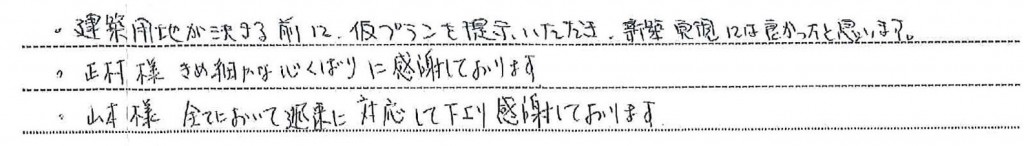 ・建築用地が決まる前に、仮プランを提示いただき、新築実現には良かったと思います。
・正村様 きめ細かな心くばりに感謝しております
・山本様 全てにおいて迅速に対応して下さり感謝しております